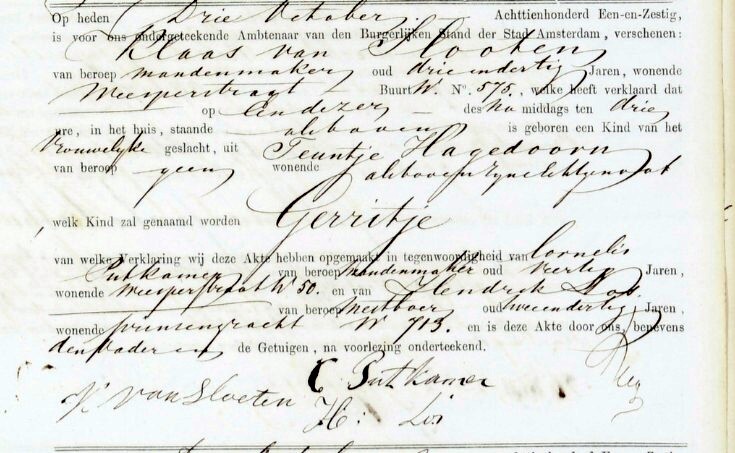 Op heden Drie October Achttienhonderd Een-en-Zestig,
is voor ons ondergeteekende Ambtenaar van den Burgerlijken Stand der Stad Amsterdam, verschenen:
Klaas van Slooten
van beroep mandenmaker oud drie endertig Jaren, wonende
Weesperstraat Buurt W. No. 575., welke heeft verklaard dat
op Een dezer des na middags ten drie
ure, in het huis, staande als boven is geboren een Kind van het
Vrouwelijke geslacht, uit Teuntje Hagedoorn
van beroep geen wonende als boven zyne Echtgenoot
welk Kind zal genaamd worden Gerritje
van welke Verklaring wij deze Akte hebben opgemaakt in tegenwoordigheid van Cornelis
Putkamer van beroep Mandenmaker oud Veertig Jaren,
wonende Weesperstraat W 50. en van Hendrik
van beroep oud twee endertig Jaren,
wonende prinsengracht W 713. en is deze Akte door ons, benevens
den Vader en de Getuigen, na voorlezing onderteekend.
C Putkamer
K van Slooten
H: